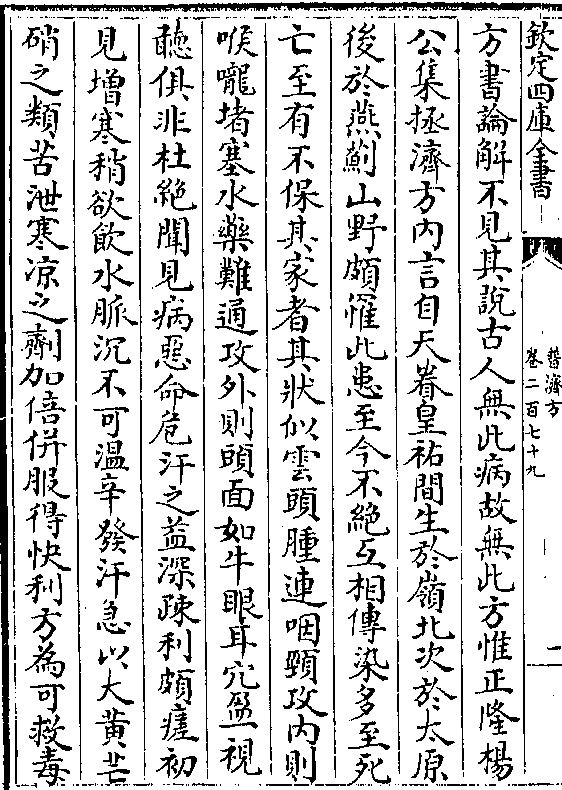 欽定四庫全書
普濟方
卷二百七十九
一
方書論解不見其說古人無此病故無此方惟正隆楊
公集拯濟方內言自天眷皇祐間生於嶺北次於太原
後於燕薊山野頗罹此患至今不絶互相傳染多至死
亡至有不保其家者其狀似雲頭腫連咽頸攻內則
喉嚨堵塞水藥難通攻外則頭面如牛眼耳穴盈視
聽俱非杜絶聞見病惡命危汗之益深疎利頗瘥初
見增寒稍欲飲水脈沉不可溫辛發汗急以大黃芒
硝之類苦泄寒凉之劑加倍併服得快利方為可救毒